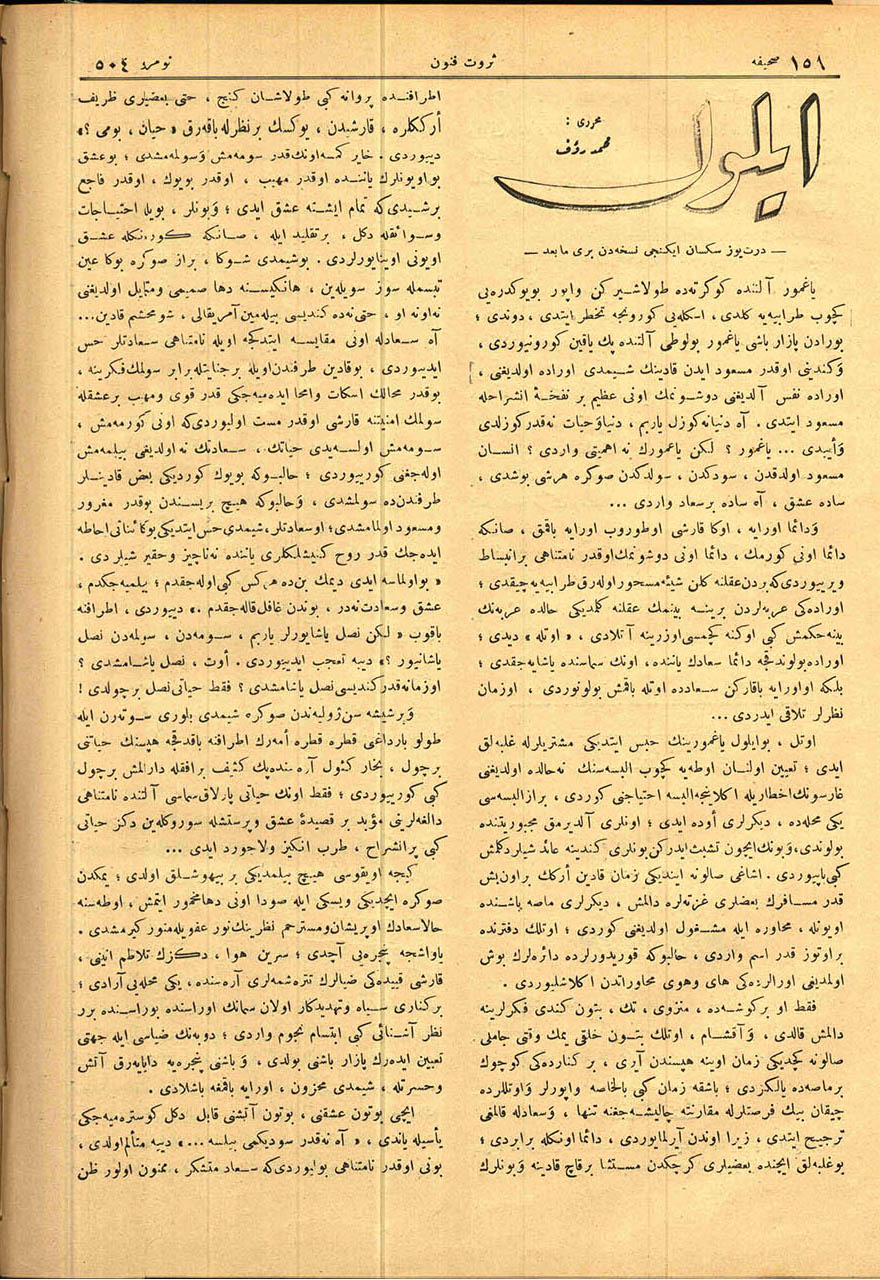 صحیفه ١٥٨
ثروت فنون
نومرو ٥٠٤
ایلول
محرری :
محمد رؤف
— درت‌یوز سكسان ایكنجی نسخه‌دن بری مابعد —
یاغمور آلتنده كوكرته‌ده طولاشیركن واپور بویوكدره‌یی
كچوب طرابیه‌یه كلدی ، اسكله‌یی كورونجه تخطر ایتدی ، دوندی ؛
بورادن پازار باشی یاغمور بولوطی آلتنده پك یاقین كورونیوردی ،
وكندینی اوقدر مسعود ایدن قادینك شیمدی اوراده اولدیغنی ،
اوراده نفس آلدیغنی دوشونمك اونی عظیم بر نفخهٔ انشراحله
مسعود ایتدی . آه دنیا نه كوزل یاربم ، دنیا وحیات نه‌قدر كوزلدی
وآییدی ... یاغمور ؟ لكن یاغمورك نه اهمیتی واردی ؟ انسان
مسعود اولدقدن ، سودكدن ، سولدكدن صوكره هرشی بوشدی ،
ساده عشق ، آه ساده برسعاد واردی ...
ودائما اورایه ، اوكا قارشی اوطوروب اورایه باقمق ، صانكه
دائما اونی كورمك ، دائما اونی دوشونمك اوقدر نامتناهی برانبساط
ویرییوردی‌كه بردن عقلنه كلن شیئه مسحور اوله‌رق طرابیه‌یه چیقدی ؛
اوراده‌كی عربه‌لردن برینه بینمك عقلنه كلمدیكی حالده عربه‌نك
بینه‌جكمش كبی اوكنه كچمسی اوزرینه آتلادی ، « اوتله » دیدی ؛
اوراده بولوندقجه دائما سعادك یاننده ، اونك سماسنده یاشایه‌جقدی ؛
بلكه او اورایه باقاركن سعادده اوتله باقمش بولونوردی ، اوزمان
نظرلر تلاقی ایدردی ...
اوتل ، بوایلول یاغمورینك حبس ایتدیكی مشتریلرله غلبه‌لق
ایدی ؛ تعیین اولنان اوطه‌یه كچوب البسه‌سنك نه‌حالده اولدیغنی
غارسونك اخطاریله اكلاینجه البسه احتیاجنی كوردی ، براز البسه‌سی
یكی محله‌ده ، دیكرلری أوده ایدی ؛ اونلری آلدیرمق مجبوریتنده
بولوندی ، وبونك ایچون تشبث ایدركن بونلری كندینه عائد شیلر دكلمش
كبی یاپییوردی . اشاغی صالونه ایندیكی زمان قادین أركك اون‌بش
قدر مسافرك بعضلری غزته‌لره دالمش ، دیكرلری ماصه باشنده
اویونله ، محاوره ایله مشغول اولدیغنی كوردی ؛ اوتلك دفترنده
براوتوز قدر اسم واردی ، حالبوكه قوریدورلرده دائره‌لرك بوش
اولمدیغی ، اورالرده‌كی های وهوی محاوراتدن اكلاشلیوردی .
فقط او بركوشه‌ده ، منزوی ، تك ، بتون كندی فكرلرینه
دالمش قالدی ، وآقشام ، اوتلك بتون خلقی یمك وقتی جاملی
صالونه كچدیكی زمان اوینه هپسندن آیری ، بر كنارده‌كی كوچوك
برماصه‌ده یالكزدی ؛ باشقه زمان كبی بالخاصه واپورلر واوتللرده
چیقان بیك فرصتلرله مقارنته چالیشه‌جغنه تنها ، وسعادله قالمغی
ترجیح ایتدی ، زیرا اوندن آیرلمایوردی ، دائما اونكله برابردی ؛
بوغلبه‌لق ایچنده بعضیلری كرچكدن مستثنا برقاچ قادینه وبونلرك
اطرافنده پروانه كبی طولاشان كنج ، حتی بعضیلری ظریف
أرككلره ، قارشیدن ، یوكسك برنظرله باقه‌رق « حیات ، بومی ؟ »
دییوردی . خایر كمسه اونك‌قدر سومه‌مش وسولمه‌مشدی ؛ بوعشق
بو اویونلرك یاننده اوقدر مهیب ، اوقدر بویوك ، اوقدر فاجع
برشیدی‌كه تمام ایشته عشق ایدی ؛ وبونلر ، بویله احتیاجات
وسوائقله دكل ، برتقلید ایله ، صانكه كورنكله عشق
اویونی اوینایورلردی . بوشیمدی شوكا ، براز صوكره بوكا عین
تبسمله سوز سویله‌ین ، هانكیسنه دها صمیمی ومتمایل اولدیغنی
نه‌اونه او ، حتی‌نه‌ده كندیسی بیله‌مین آمریقالی ، شومحتشم قادین...
آه سعادله اونی مقایسه ایتدكجه اویله نامتناهی سعادتلر حس
ایدییوردی ، بوقادین طرفندن اویله برجنایتله برابر سولمك فكرینه ،
بوقدر محالك اسكات وامحا ایده‌میه‌جكی قدر قوی ومهیب برعشقله
سولمك امنیتنه قارشی اوقدر مست اولیوردی‌كه اونی كورمه‌مش ،
سومه‌مش اولسه‌یدی حیاتك ، سعادتك نه اولدیغنی بیلمه‌مش
اوله‌جغنی كورییوردی ؛ حالبوكه بویوك كوردیكی بعض قادینلر
طرفندن‌ده سولمشدی ، وحالبوكه هیچ بریسندن بوقدر مغرور
ومسعود اولمامشدی ؛ اوسعادتلر ، شیمدی حس ایتدیكی بوكائناتی احاطه
ایده‌جك قدر روح كنیشلكلری یاننده نه‌ناچیز وحقیر شیلر دی .
« بواولماسه ایدی دیمك بن‌ده هركس كبی اوله‌جقدم ؛ بیلمیه‌جكدم ،
عشق وسعادت نه‌در ، بوندن غافل قاله‌جقدم .» دییوردی ، اطرافنه
باقوب « لكن نصل یاشایورلر یاربم ، سومه‌دن ، سولمه‌دن نصل
یاشانیور ؟ » دییه تعجب ایدییوردی . أوت ، نصل یاشامشدی ؟
اوزمانه‌قدر كندیسی نصل یاشامشدی ؟ فقط حیاتی نصل برچولدی !
وبرشیشه سن‌ژولیه‌ندن صوكره شیمدی بلوری سوته‌رن ایله
طولو بارداغی قطره قطره أمه‌رك اطرافنه باقدقجه هپسنك حیاتنی
برچول ، بخار كئول آره‌سنده پك كثیف برافقله دارالمش برچول
كبی كورییوردی ؛ فقط اونك حیاتی پارلاق سماسی آلتنده نامتناهی
دالغه‌لرینی مؤبد بر قصیدهٔ عشق وپرستشله سوروكله‌ین دكز حیاتی
كبی پرانشراح ، طرب انكیز ولاجورد ایدی ...
كیجه اویقوسی هیچ بیلمدیكی بر بیهوشلق اولدی ؛ یمكدن
صوكره ایچدیكی ویسكی ایله صودا اونی دها مخمور ایتمش ، اوطه‌سنه
حالا سعادك اوپریشان ومسترحم نظرینك نور عفویله منور كیرمشدی .
یاواشجه پنجره‌یی آچدی ؛ سرین هوا ، دكزك تلاطم انینی ،
قارشی قییده‌كی ضیالرك تتره‌شمه‌لری آره‌سنده ، یكی محله‌یی آرادی ؛
بركناری سیاه وتهدیدكار اولان سمانك اوراسنده بوراسنده برر
نظر آشنائی كبی ابتسام نجوم واردی ؛ دوبه‌نك ضیاسی ایله جهتی
تعیین ایده‌رك پازار باشنی بولدی ، وباشنی پنجره‌یه دایایه‌رق آتش
وحسرتله ، شیمدی محزون ، اورایه باقمغه باشلادی .
ایچی بوتون عشقنی ، بوتون آتشنی قابل دكل كوستره‌میه‌جكی
یأسیله یاندی ، « آه نه‌قدر سودیكمی بیلسه ... » دییه متألم اولدی ،
بونی اوقدر نامتناهی بولیوردی‌كه سعاد متشكر ، ممنون اولور ظن